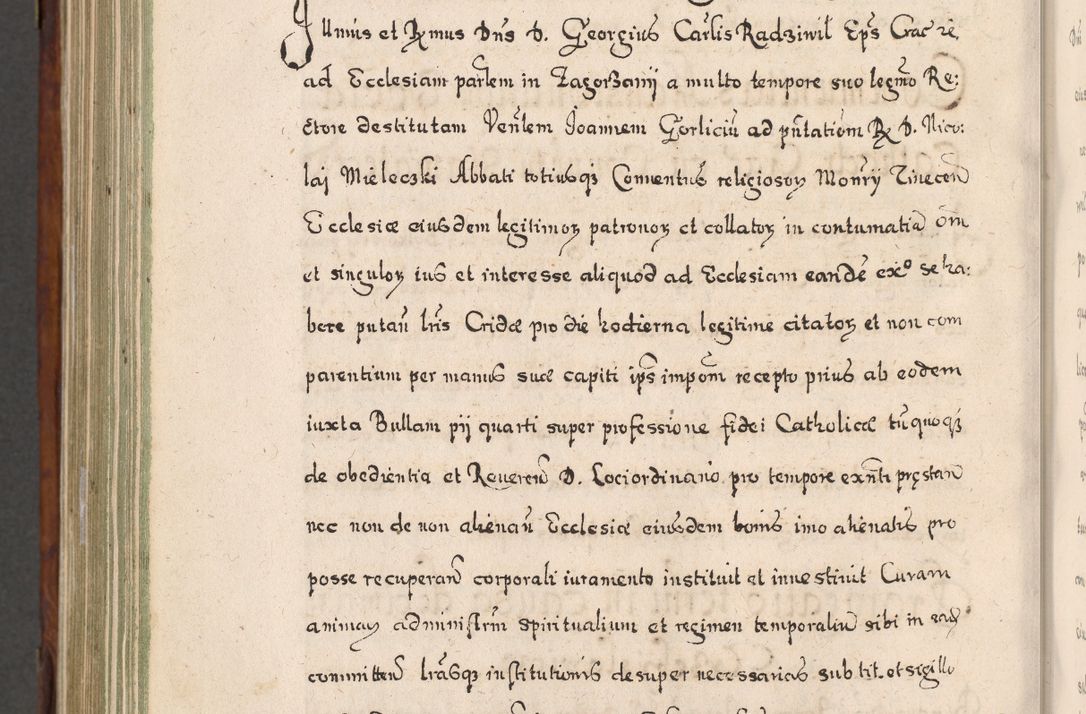 Illmus et Rxmus Dns D. Georgius Carlis Radziwil Eps Crac re,
ad Ecclesiam parlem in Zagorzanij a multo tempore suo legmo Re:
ctore destitutam Venlem Joannem Gorliciu ad pntatiom R D. Nico:
laj Mieleczki Abbati totiusqz Conuentus religiosoz Monrij Tinecen
Ecclesiæ eiusdem legitimoz patronoz et collatoz in contumatia om
et singuloz ius et interesse aliquod ad Ecclesiam eandē exo se ha:
bere putan lris Cridæ pro die hodierna legitime citatoz et non com
parentium per manus suæ capiti ips impom recepto prius ab eodem
iuxta Bullam pij quarti super professione fidei Catholicæ tū quoqz
de obedientia et Reueren D. Lociordinario pro tempore exnti pręstan
nec non de non alienan Ecclesiæ eiusdem bonis imo alienatis pro
posse recuperan corporali iuramento instituit et inuestiuit Curam
animaz administrm spiritualium et regimen temporaliu sibi in ead
committen lrasqz institutionis desuper necessarias sub tit. et sigillo